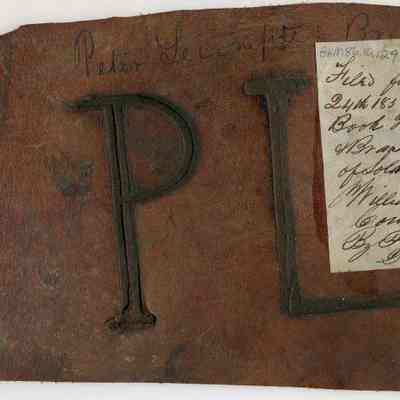 Peter Lecompte
P L
Filed
24th 185
Book
& Brap
of Sola
Willi
Com
By